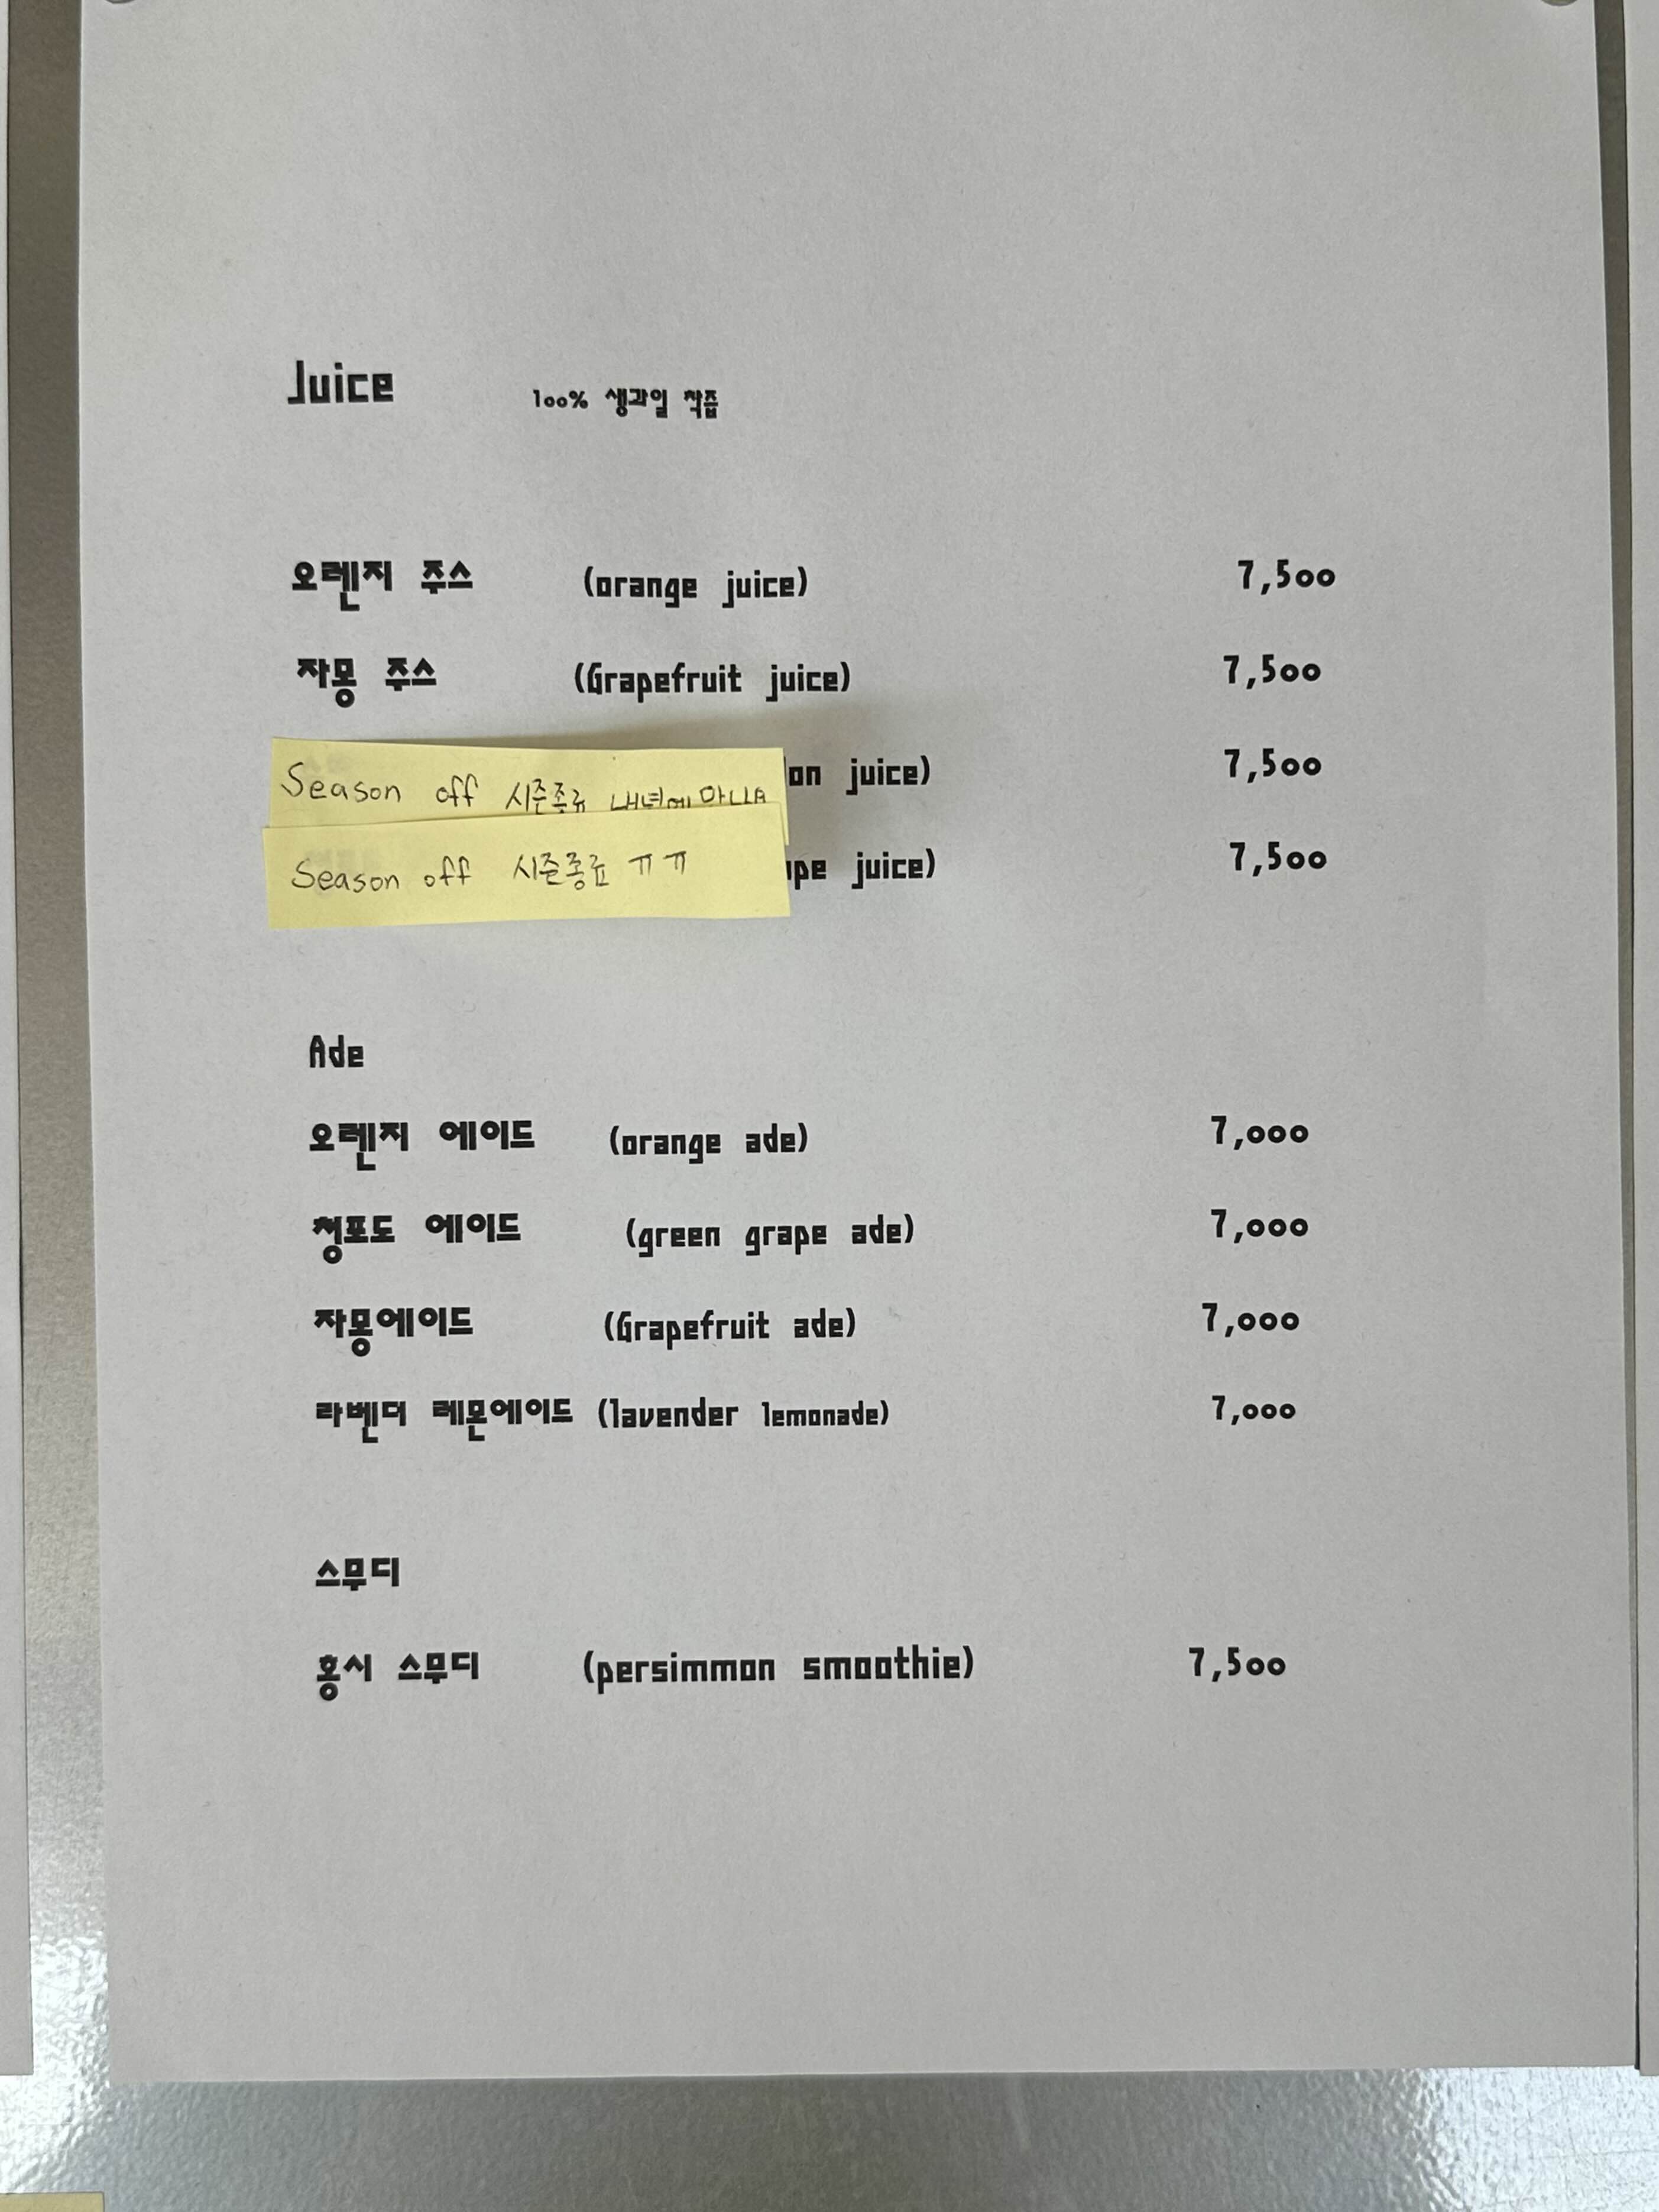 Juice 100% 생과일 착즙
오렌지 주스 (orange juice) 7,500
자몽 주스 (Grapefruit juice) 7,500
Season off 시즌종료 내년에 만나 on juice) 7,500
Season off 시즌종료 ㅠㅠ pe juice) 7,500
Ade
오렌지 에이드 (orange ade) 7,000
청포도 에이드 (green grape ade) 7,000
자몽에이드 (Grapefruit ade) 7,000
라벤더 레몬에이드 (lavender lemonade) 7,000
스무디
홍시 스무디 (persimmon smoothie) 7,500